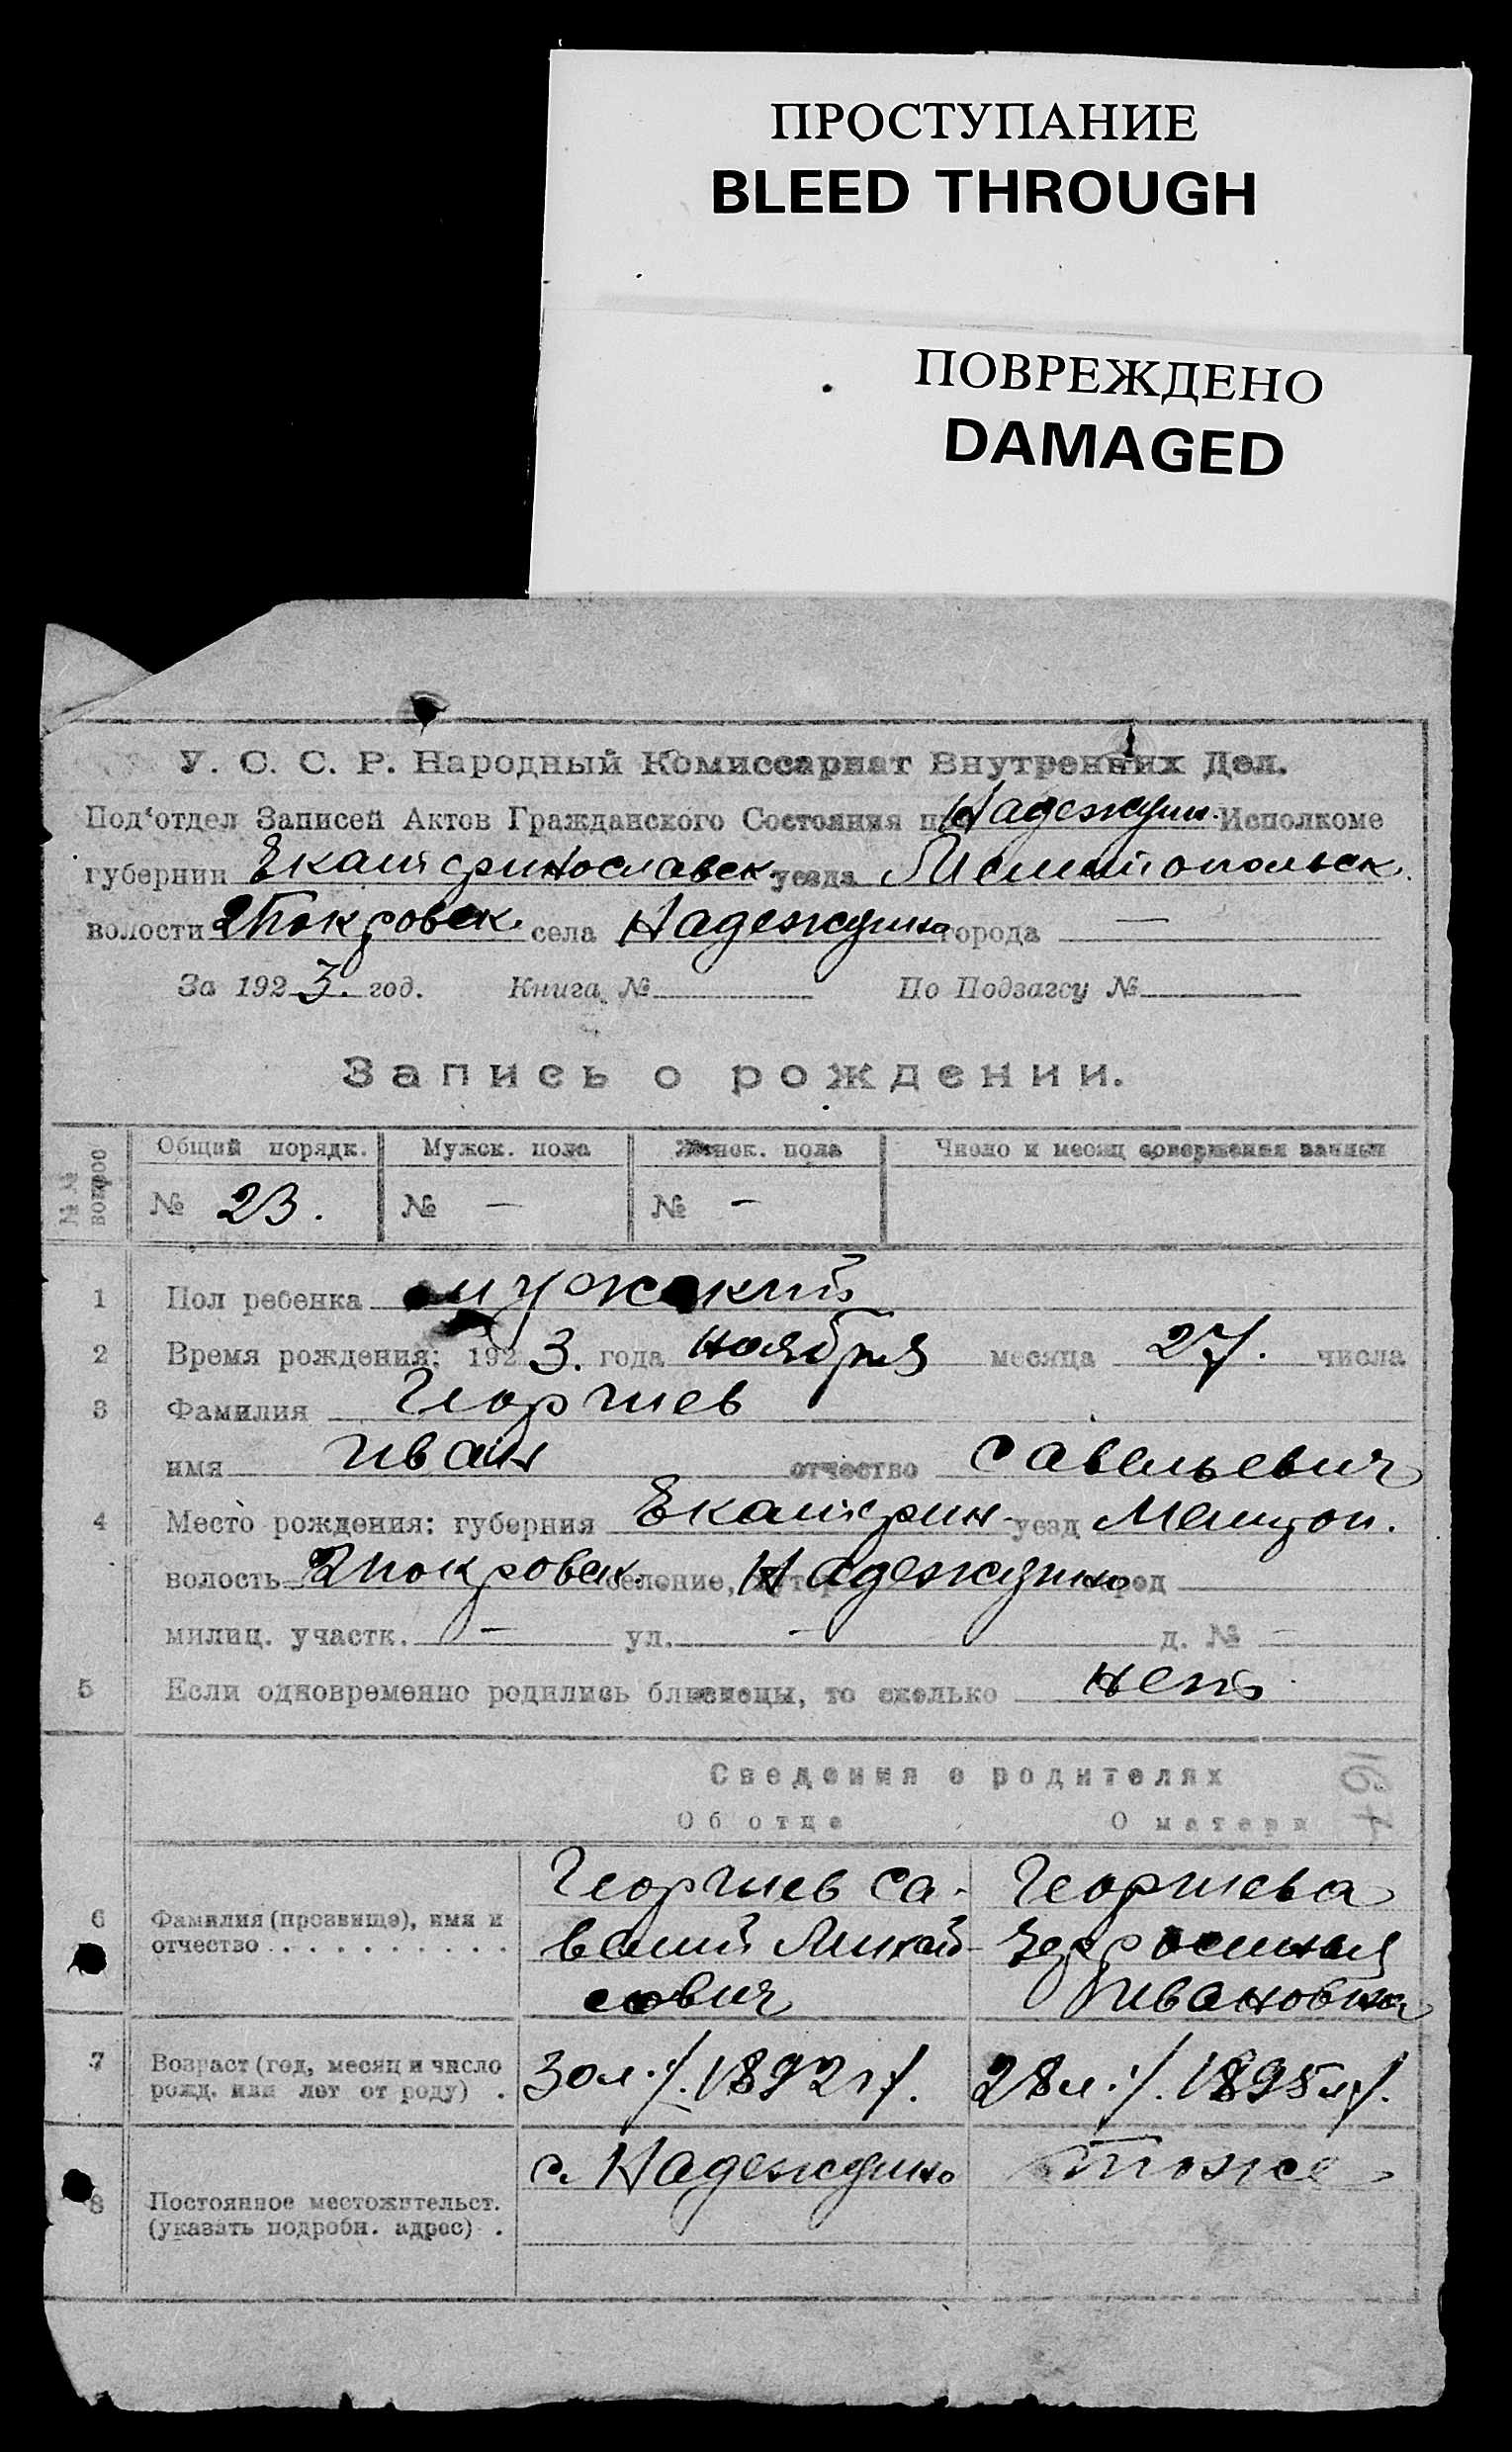 ПРОСТУПАНИЕ
BLEED THROUGH
ПОВРЕЖДЕНО
DAMAGED
У. С. С. Р. Народный Комиссариат Внутренних Дел.
Под'отдел Записей Актов Гражданского Состояния при Надеждин. Исполкоме
губернии Екатеринославск. уезда Мелитопольск.
волости 2 Покровск. села Надеждино города —
За 1923. год. Книга № По Подзагсу №
Запись о рождении.
№№ вопрос
Общий порядк. Мужск. пола Женск. пола Число и месяц совершения записи
№ 23. № — № —
1 Пол ребенка мужской
2 Время рождения: 1923. года ноября месяца 27. числа
3 Фамилия Георгиев
имя Иван отчество Савельевич
4 Место рождения: губерния Екатерин. уезд Мелитоп.
волость 2 Покровск. селение, хутор Надеждино город
милиц. участк. — ул. — д. № —
5 Если одновременно родились близнецы, то сколько нет
Сведения о родителях
Об отце О матери
6 Фамилия (прозвище), имя и
отчество . . . . . . . . . .
Георгиев Са-
велий Михай-
лович
Георгиева
Ивановна
7 Возраст (год, месяц и число
рожд. или лет от роду) .
30 л. /. 1892 г/. 28 л. /. 1895 г/.
8 Постоянное местожительст.
(указать подробн. адрес) .
с. Надеждино тоже